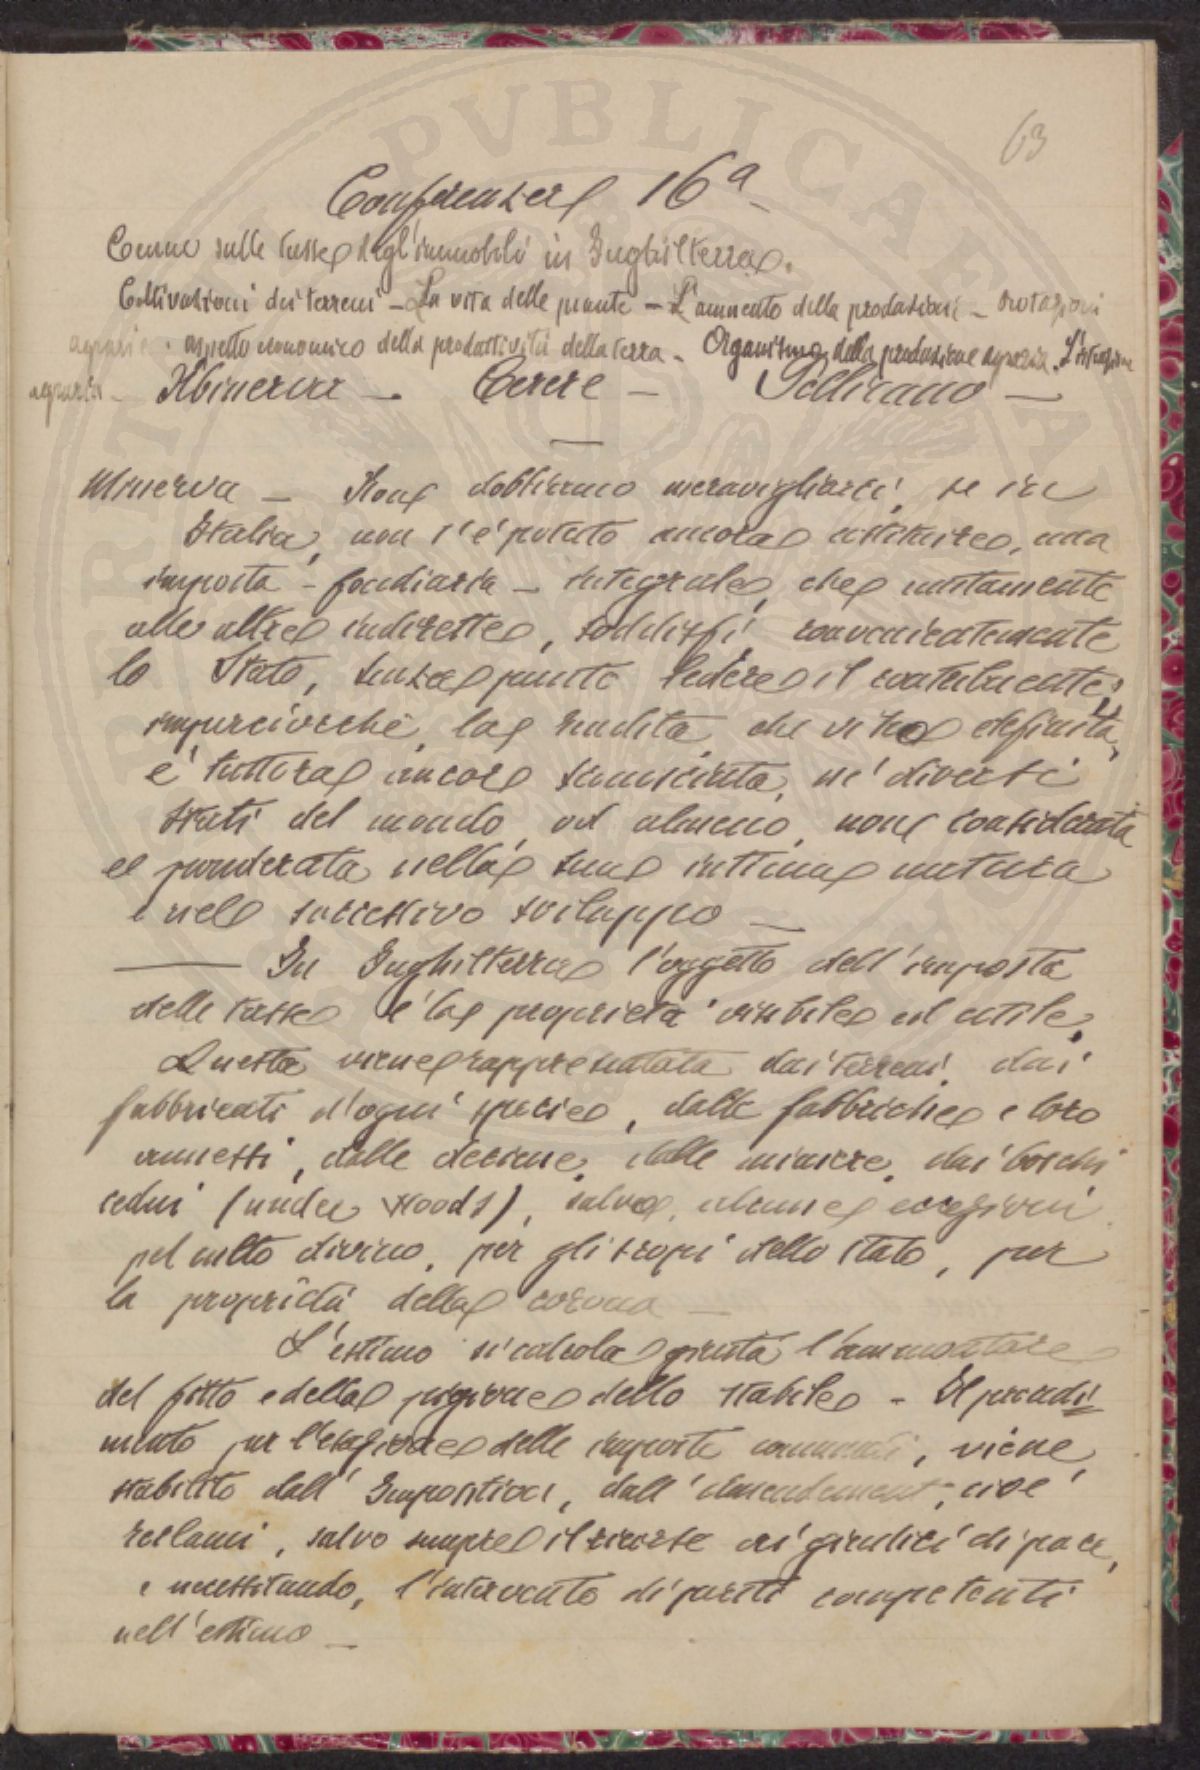 63
Conferenza 16ª
Cenni sulle tasse degl'immobili in Inghilterra.
Coltivazioni dei terreni - La vita delle piante - L'aumento della produzione - rotazioni
agrarie - aspetto economico della produttività della terra - Organismo della produzione agraria. L'istruzione
agraria - Minerva - Cerere - Pellicano -
Minerva - Non dobbiamo meravigliarci, se in
Italia, non s'è potuto ancora istituire, una
imposta - fondiaria - integrale, che unitamente
alle altre indirette, soddisfi convenientemente
lo Stato, senza punto ledere il contribuente;
imperciocchè, la rendita, che vi ho definita,
e' tuttora ancora sconosciuta, ne' diversi
stati del mondo, od almeno, non considerata
e ponderata nella sua intima natura
e nel successivo sviluppo -
In Inghilterra l'oggetto dell'imposta
delle tasse è la proprietà visibile ed utile.
Questa viene rappresentata dai terreni, dai
fabbricati d'ogni specie, dalle fabbriche e loro
annessi, dalle decime, dalle miniere, dai boschi
cedui (under woods), salvo, alcune eccezioni
pel culto divino, per gli scopi dello stato, per
la proprietà della corona -
L'estimo si calcola giusta l'ammontare
del fitto e della pigione dello stabile - Il procedi
mento per l'esazione delle imposte comunali, viene,
stabilito dall' , dall' , cioè
reclami, salvo sempre il ricorso ai giudici di pace,
e necessitando, l'intervento di periti competenti
nell'estimo -
PVBLICAE